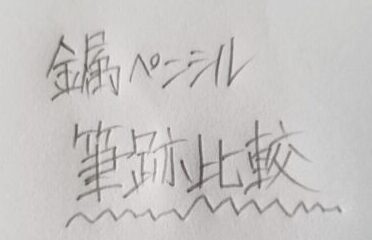 金属ペンシル
筆跡比較